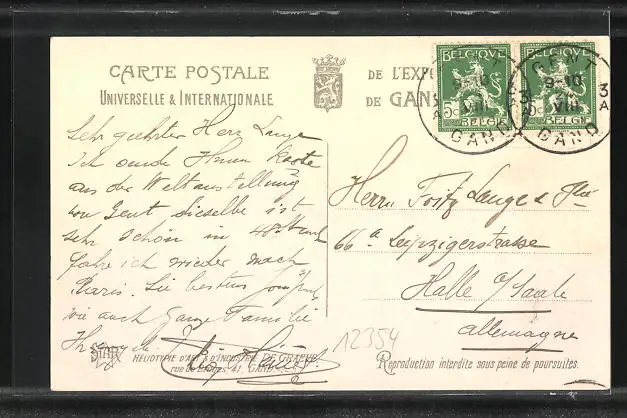 CARTE POSTALE
UNIVERSELLE & INTERNATIONALE
DE L'EXPO
DE GAN
BELGIQUE BELGIQUE
5c 5c
BELGIË BELGIË
GENT GENT
9-10 9-10
VIII VIII
3 A 3 A
GAND GAND
Sehr geehrter Herr Lange
Ich sende Ihnen Karte
aus der Weltausstellung
von Gent dieselbe ist
sehr schön in 48 Stund
fahre ich wieder nach
Paris. Sie bestens
wie auch Ganze Familie
Herrn Fritz Lange &
66a Leipzigerstrasse
Halle a/Saale
Allemagne
12354
STAR
HÉLIOTYPIE D'ART & D'INDUSTRIE DE GRAEVE
rue de Bruges, 41, GAND
Reproduction interdite sous peine de poursuites.